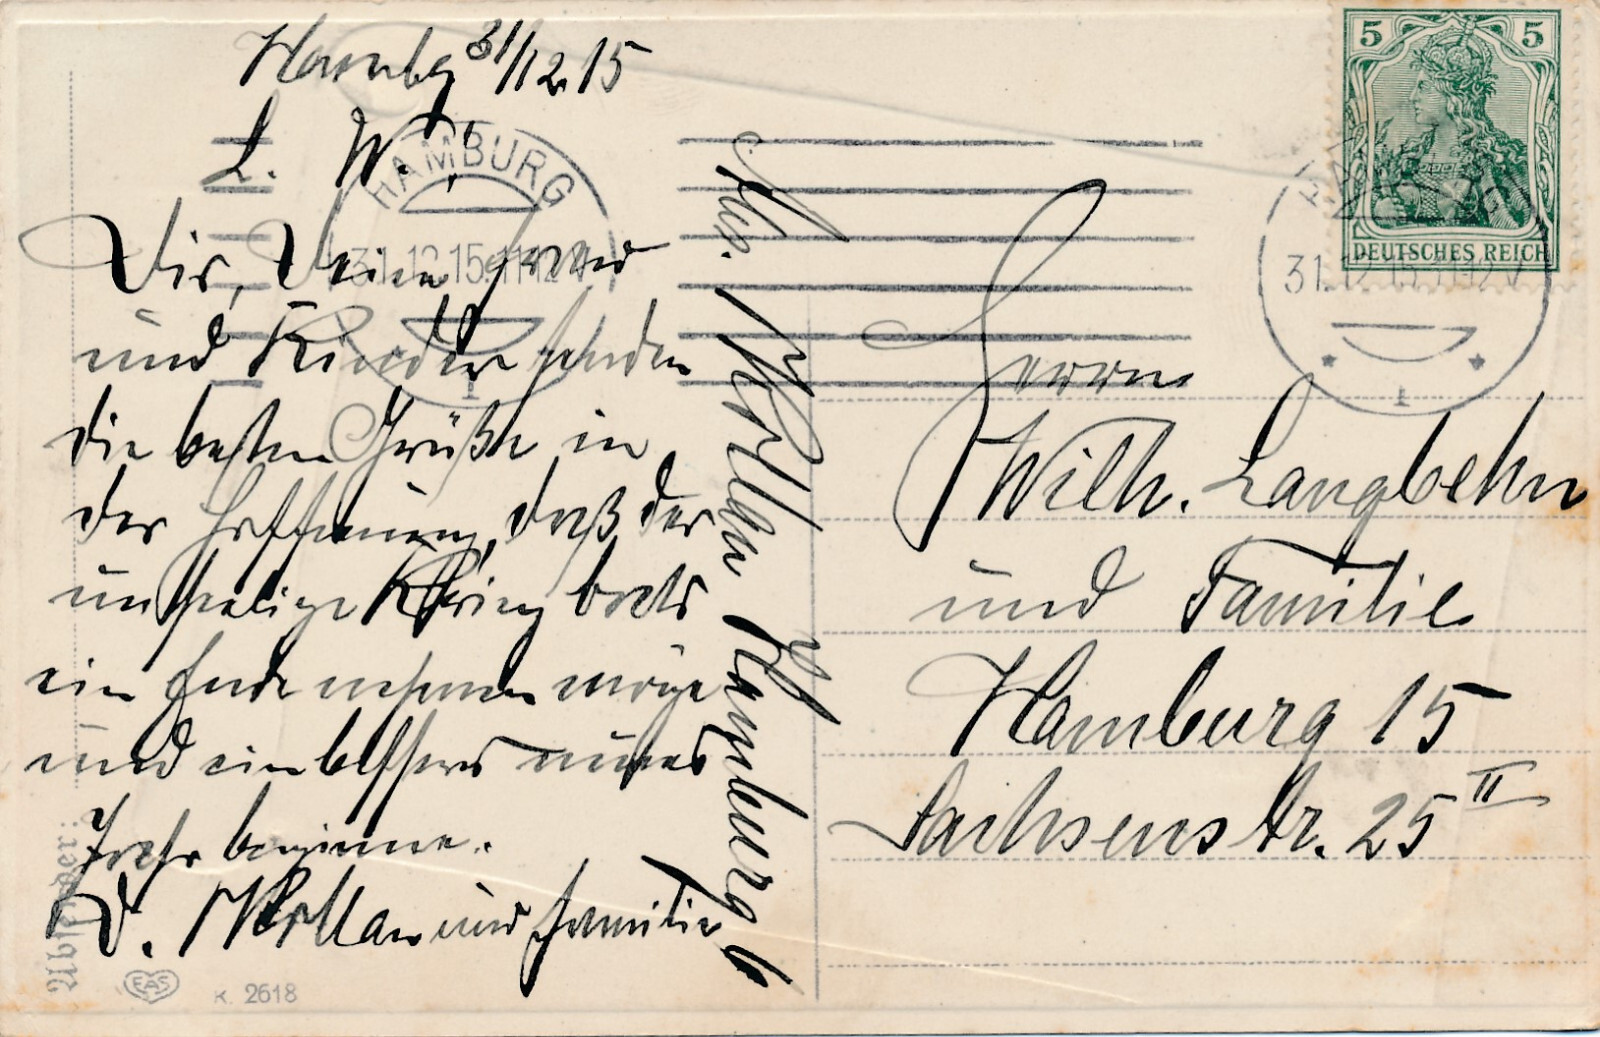 Hambg 31/12.15
L. W.!
Dir, Deine Frau
und Kinder senden
die besten Grüße in
der Hoffnung, daß der
unselige Krieg bald
ein Ende nehmen möge
und ein besseres neues
Jahr beginne.
D. und Familie
Hamburg 6
Herrn
Wilh. Langbehn
und Familie
Hamburg 15
Sachsenstr. 25 II
5 5
DEUTSCHES REICH
HAMBURG
31.12.15.11-12V
1
HAMBURG
31.12.15.11-12V
1
Absender:
EAS
K. 2618